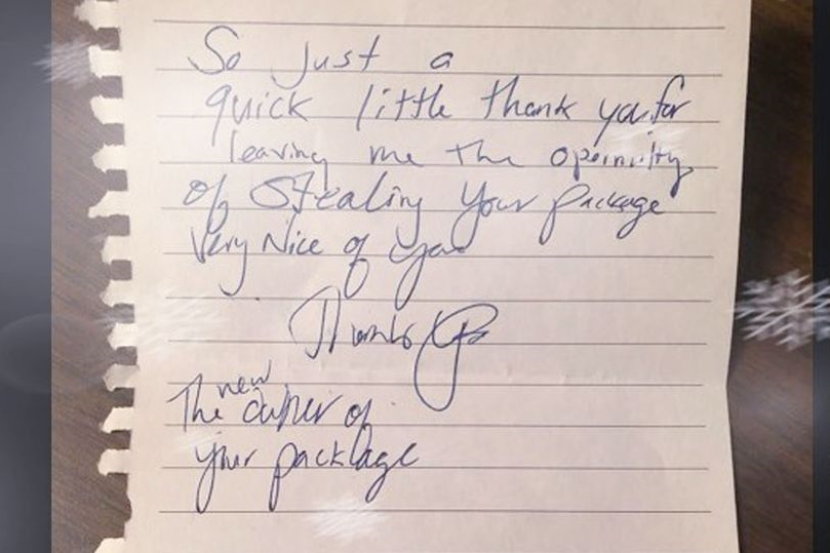 So Just a
quick little thank you for
leaving me the oppinulty
of Stealing your package
Very Nice of you
Thanks
new
The owner of
your packlage